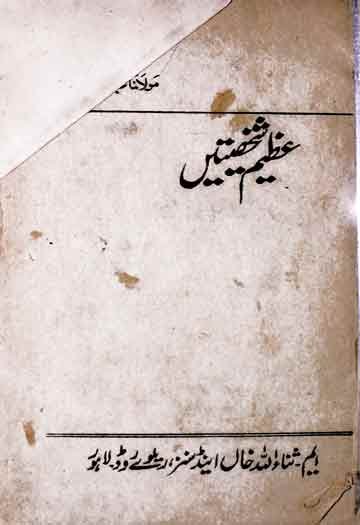 مولانا
عظیم شخصیتیں
ایم۔ ثناءاللہ خاں اینڈ سنز، ریلوے روڈ۔ لاہور